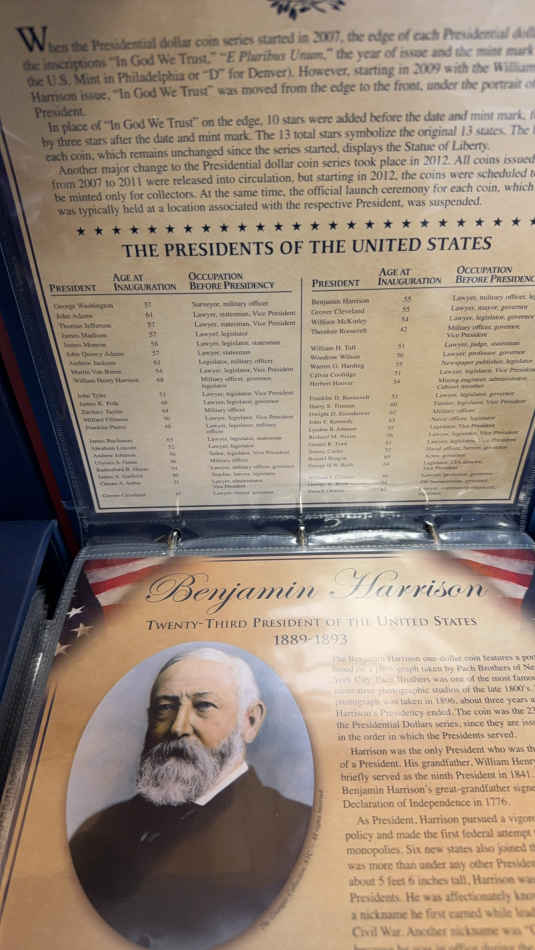 When the Presidential dollar coin series started in 2007, the edge of each Presidential
the inscriptions “In God We Trust,” “E Pluribus Unum,” the year of issue and the mint mark
the U.S. Mint in Philadelphia or “D” for Denver). However, starting in 2009 with the William
Harrison issue, “In God We Trust” was moved from the edge to the front, under the portrait of
President.
In place of “In God We Trust” on the edge, 10 stars were added before the date and mint mark,
by three stars after the date and mint mark. The 13 total stars symbolize the original 13 states. The
each coin, which remains unchanged since the series started, displays the Statue of Liberty.
Another major change to the Presidential dollar coin series took place in 2012. All coins issued
from 2007 to 2011 were released into circulation, but starting in 2012, the coins were scheduled to
be minted only for collectors. At the same time, the official launch ceremony for each coin, which
was typically held at a location associated with the respective President, was suspended.
THE PRESIDENTS OF THE UNITED STATES
PRESIDENT AGE AT INAUGURATION OCCUPATION BEFORE PRESIDENCY
George Washington 57 Surveyor, military officer
John Adams 61 Lawyer, statesman, Vice President
Thomas Jefferson 57 Lawyer, statesman, Vice President
James Madison 57 Lawyer, legislator
James Monroe 58 Lawyer, legislator, statesman
John Quincy Adams 57 Lawyer, statesman
Andrew Jackson 61 Legislator, military officer
Martin Van Buren 54 Lawyer, legislator, Vice President
William Henry Harrison 68 Military officer, governor,
legislator
John Tyler 51 Lawyer, legislator, Vice President
James K. Polk 49 Lawyer, legislator, governor
Zachary Taylor 64 Military officer
Millard Fillmore 50 Lawyer, legislator, Vice President
Franklin Pierce 48 Lawyer, legislator, military
officer
James Buchanan 65 Lawyer, legislator, statesman
Abraham Lincoln 52 Lawyer, legislator
Andrew Johnson 56 Tailor, legislator, Vice President
Ulysses S. Grant 46 Military officer
Rutherford B. Hayes 54 Lawyer, military officer, governor
James A. Garfield 49
Chester A. Arthur 51
Vice President
Grover Cleveland 47
PRESIDENT AGE AT INAUGURATION OCCUPATION BEFORE
Benjamin Harrison 55 Lawyer, military officer,
Grover Cleveland 55 Lawyer, mayor, governor
William McKinley 54 Lawyer, legislator, governor
Theodore Roosevelt 42 Military officer, governor,
Vice President
William H. Taft 51 Lawyer, judge, statesman
Woodrow Wilson 56 Lawyer, professor, governor
Warren G. Harding 55 Newspaper publisher, legislator
Calvin Coolidge 51 Lawyer, legislator, Vice President
Herbert Hoover 54 Mining engineer, administrator,
Cabinet member
Franklin D. Roosevelt 51 Lawyer, legislator, governor
Harry S. Truman 60 Farmer, legislator, Vice President
Dwight D. Eisenhower 62 Military officer
John F. Kennedy 43 Naval officer, legislator
Lyndon B. Johnson 55 Legislator, Vice President
Richard M. Nixon 56 Lawyer, legislator, Vice President
Gerald R. Ford 61 Lawyer, legislator, Vice President
Jimmy Carter 52
Ronald Reagan 69
George H.W. Bush 64
Vice President
Benjamin Harrison
TWENTY-THIRD PRESIDENT OF THE UNITED STATES
1889-1893
The Benjamin Harrison one-dollar coin features a
based on a photograph taken by Pach Brothers of
York City. Pach Brothers was one of the most
photographic studios of the late 1800's.
photograph was taken in 1896, about three years
Harrison's Presidency ended. The coin was the
the Presidential Dollars series, since they are
in the order in which the Presidents served.
Harrison was the only President who was the
of a President. His grandfather, William Henry
briefly served as the ninth President in 1841.
Benjamin Harrison's great-grandfather
Declaration of Independence in 1776.
As President, Harrison pursued a
policy and made the first federal attempt
monopolies. Six new states also joined
was more than under any other
about 5 feet 6 inches tall, Harrison was
Presidents. He was affectionately
a nickname he first earned while
Civil War. Another nickname was